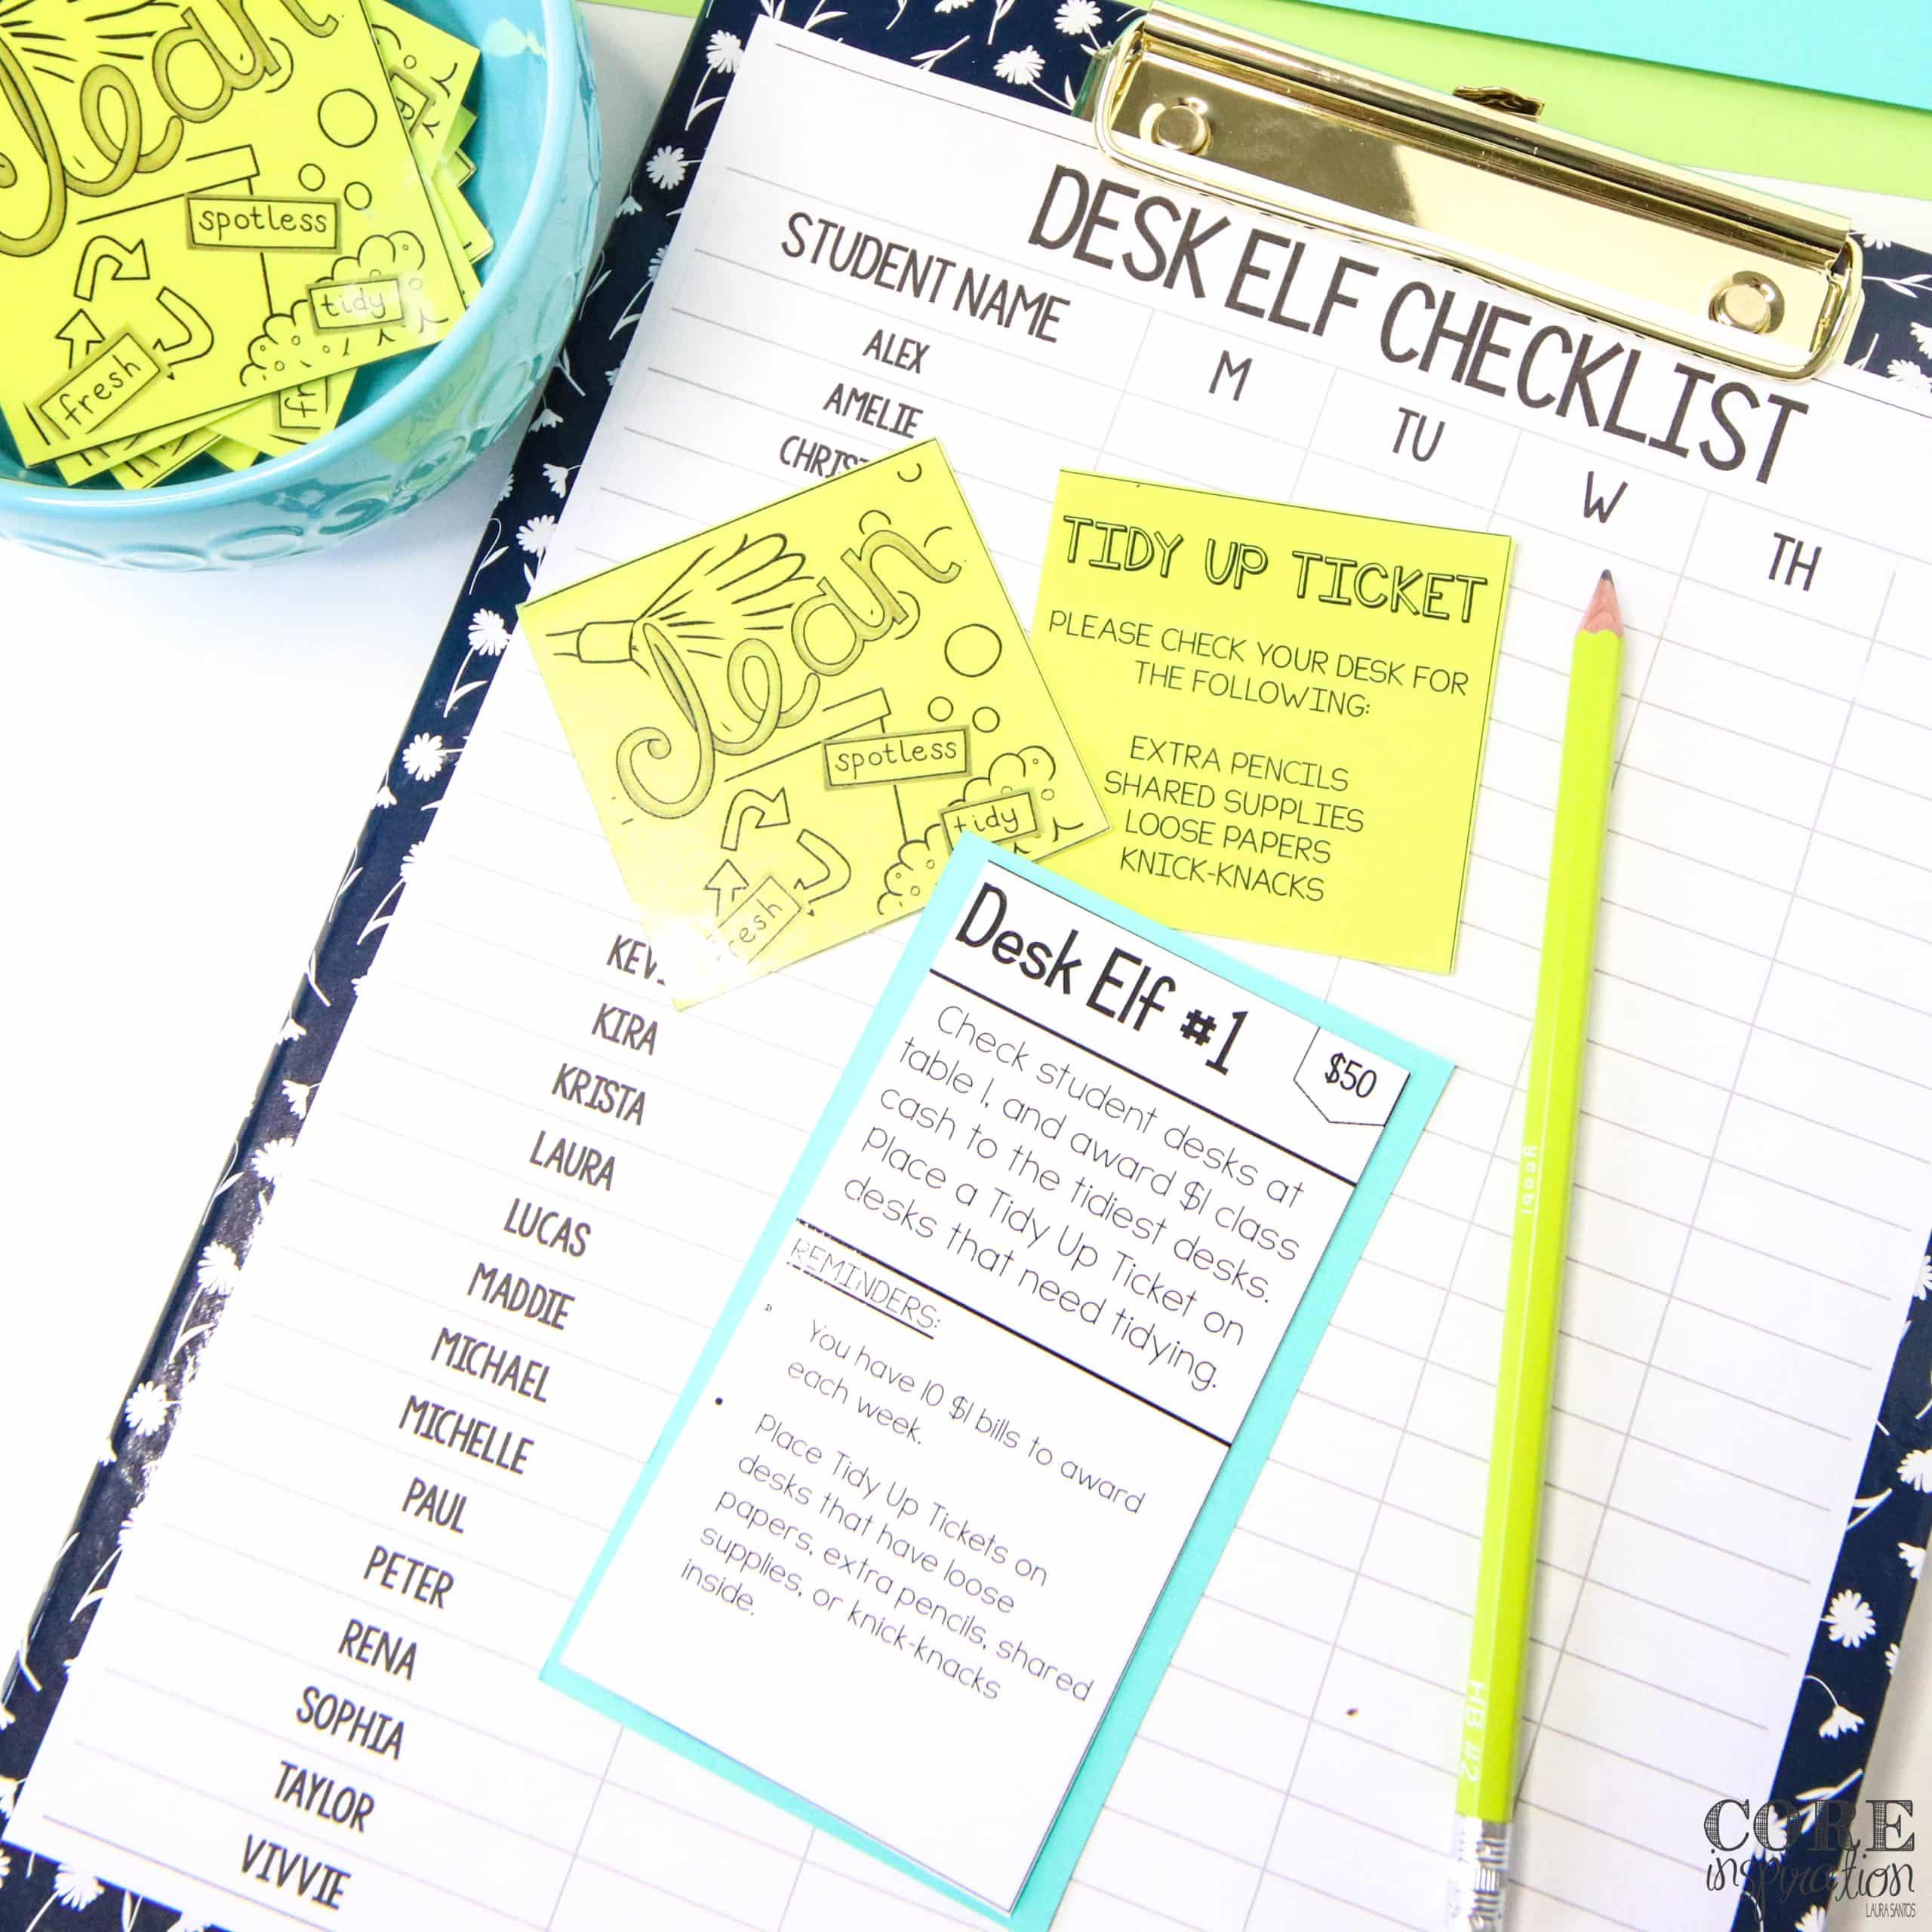 clean
spotless
tidy
fresh
DESK ELF CHECKLIST
STUDENT NAME
M
TU
W
TH
ALEX
AMELIE
clean
spotless
tidy
TIDY UP TICKET
PLEASE CHECK YOUR DESK FOR
THE FOLLOWING:
EXTRA PENCILS
SHARED SUPPLIES
LOOSE PAPERS
KNICK-KNACKS
KIRA
KRISTA
LAURA
LUCAS
MADDIE
MICHAEL
MICHELLE
PAUL
PETER
RENA
SOPHIA
TAYLOR
VIVVIE
Desk Elf #1
$50
Check student desks at
table 1, and award $1 class
cash to the tidiest desks.
Place a Tidy Up Ticket on
desks that need tidying.
REMINDERS:
You have 10 $1 bills to award
each week.
• Place Tidy Up Tickets on
desks that have loose
papers, extra pencils, shared
supplies, or knick-knacks
inside.
HB #2
CORE
inspiration
LAURA SANTOS